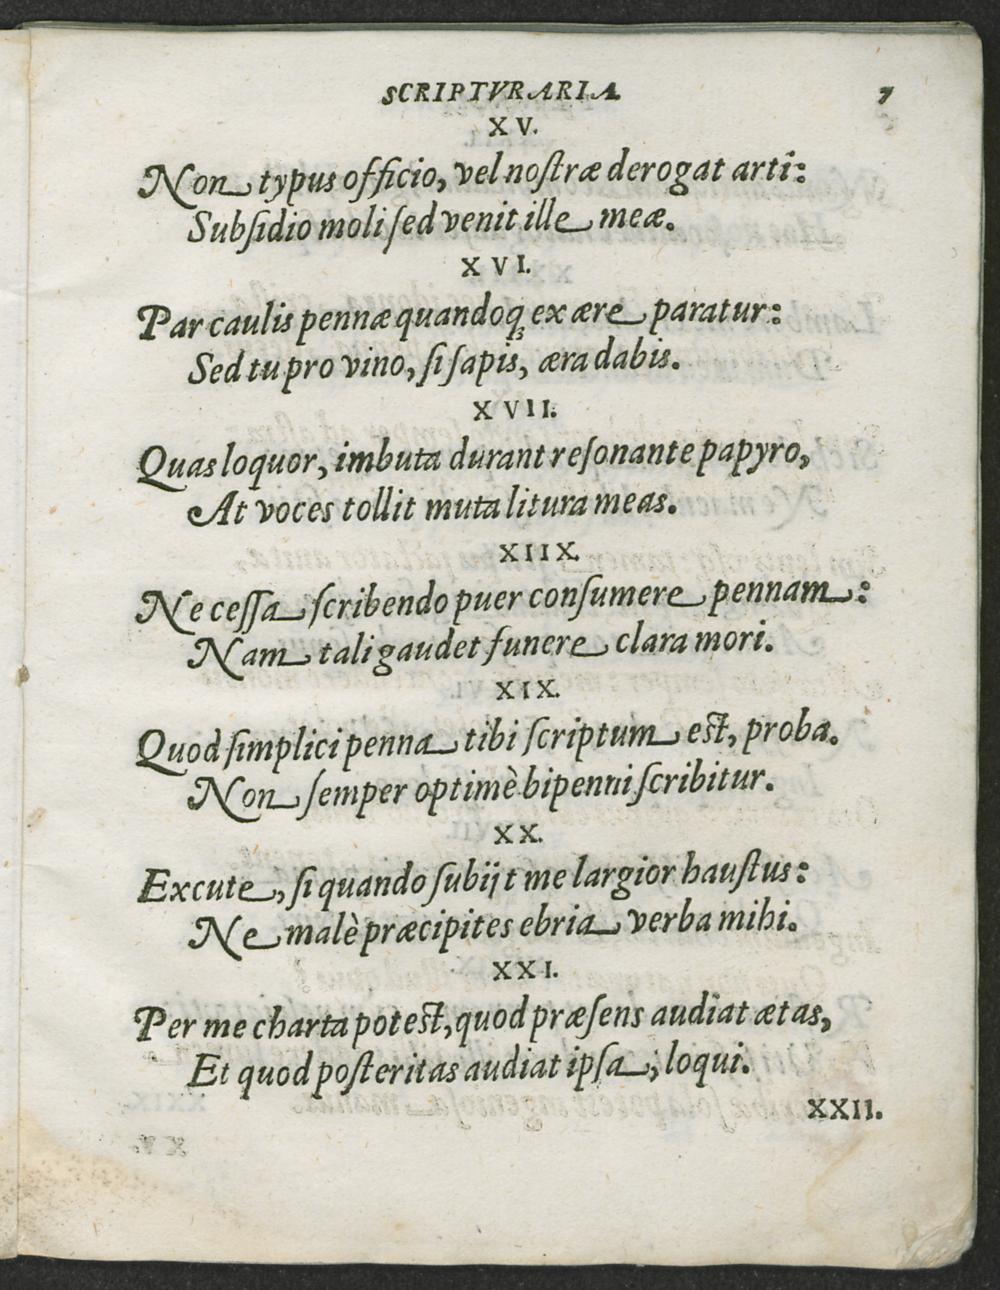 SCRIPTVRARIA. 7
XV.
Non typus officio, vel noſtræ derogat arti:
Subſidio moli ſed venit ille meæ.
XVI.
Par caulis pennæ quandoq; ex ære paratur:
Sed tu pro vino, ſi ſapis, æra dabis.
XVII.
Quas loquor, imbuta durant reſonante papyro,
At voces tollit muta litura meas.
XIIX.
Ne ceſſa ſcribendo puer conſumere pennam:
Nam tali gaudet funere clara mori.
XIX.
Quod ſimplici penna tibi ſcriptum eſt, proba.
Non ſemper optimè bipenni ſcribitur.
XX.
Excute, ſi quando ſubijt me largior hauſtus:
Ne malè præcipites ebria verba mihi.
XXI.
Per me charta poteſt, quod præſens audiat ætas,
Et quod poſteritas audiat ipſa, loqui.
XXII.